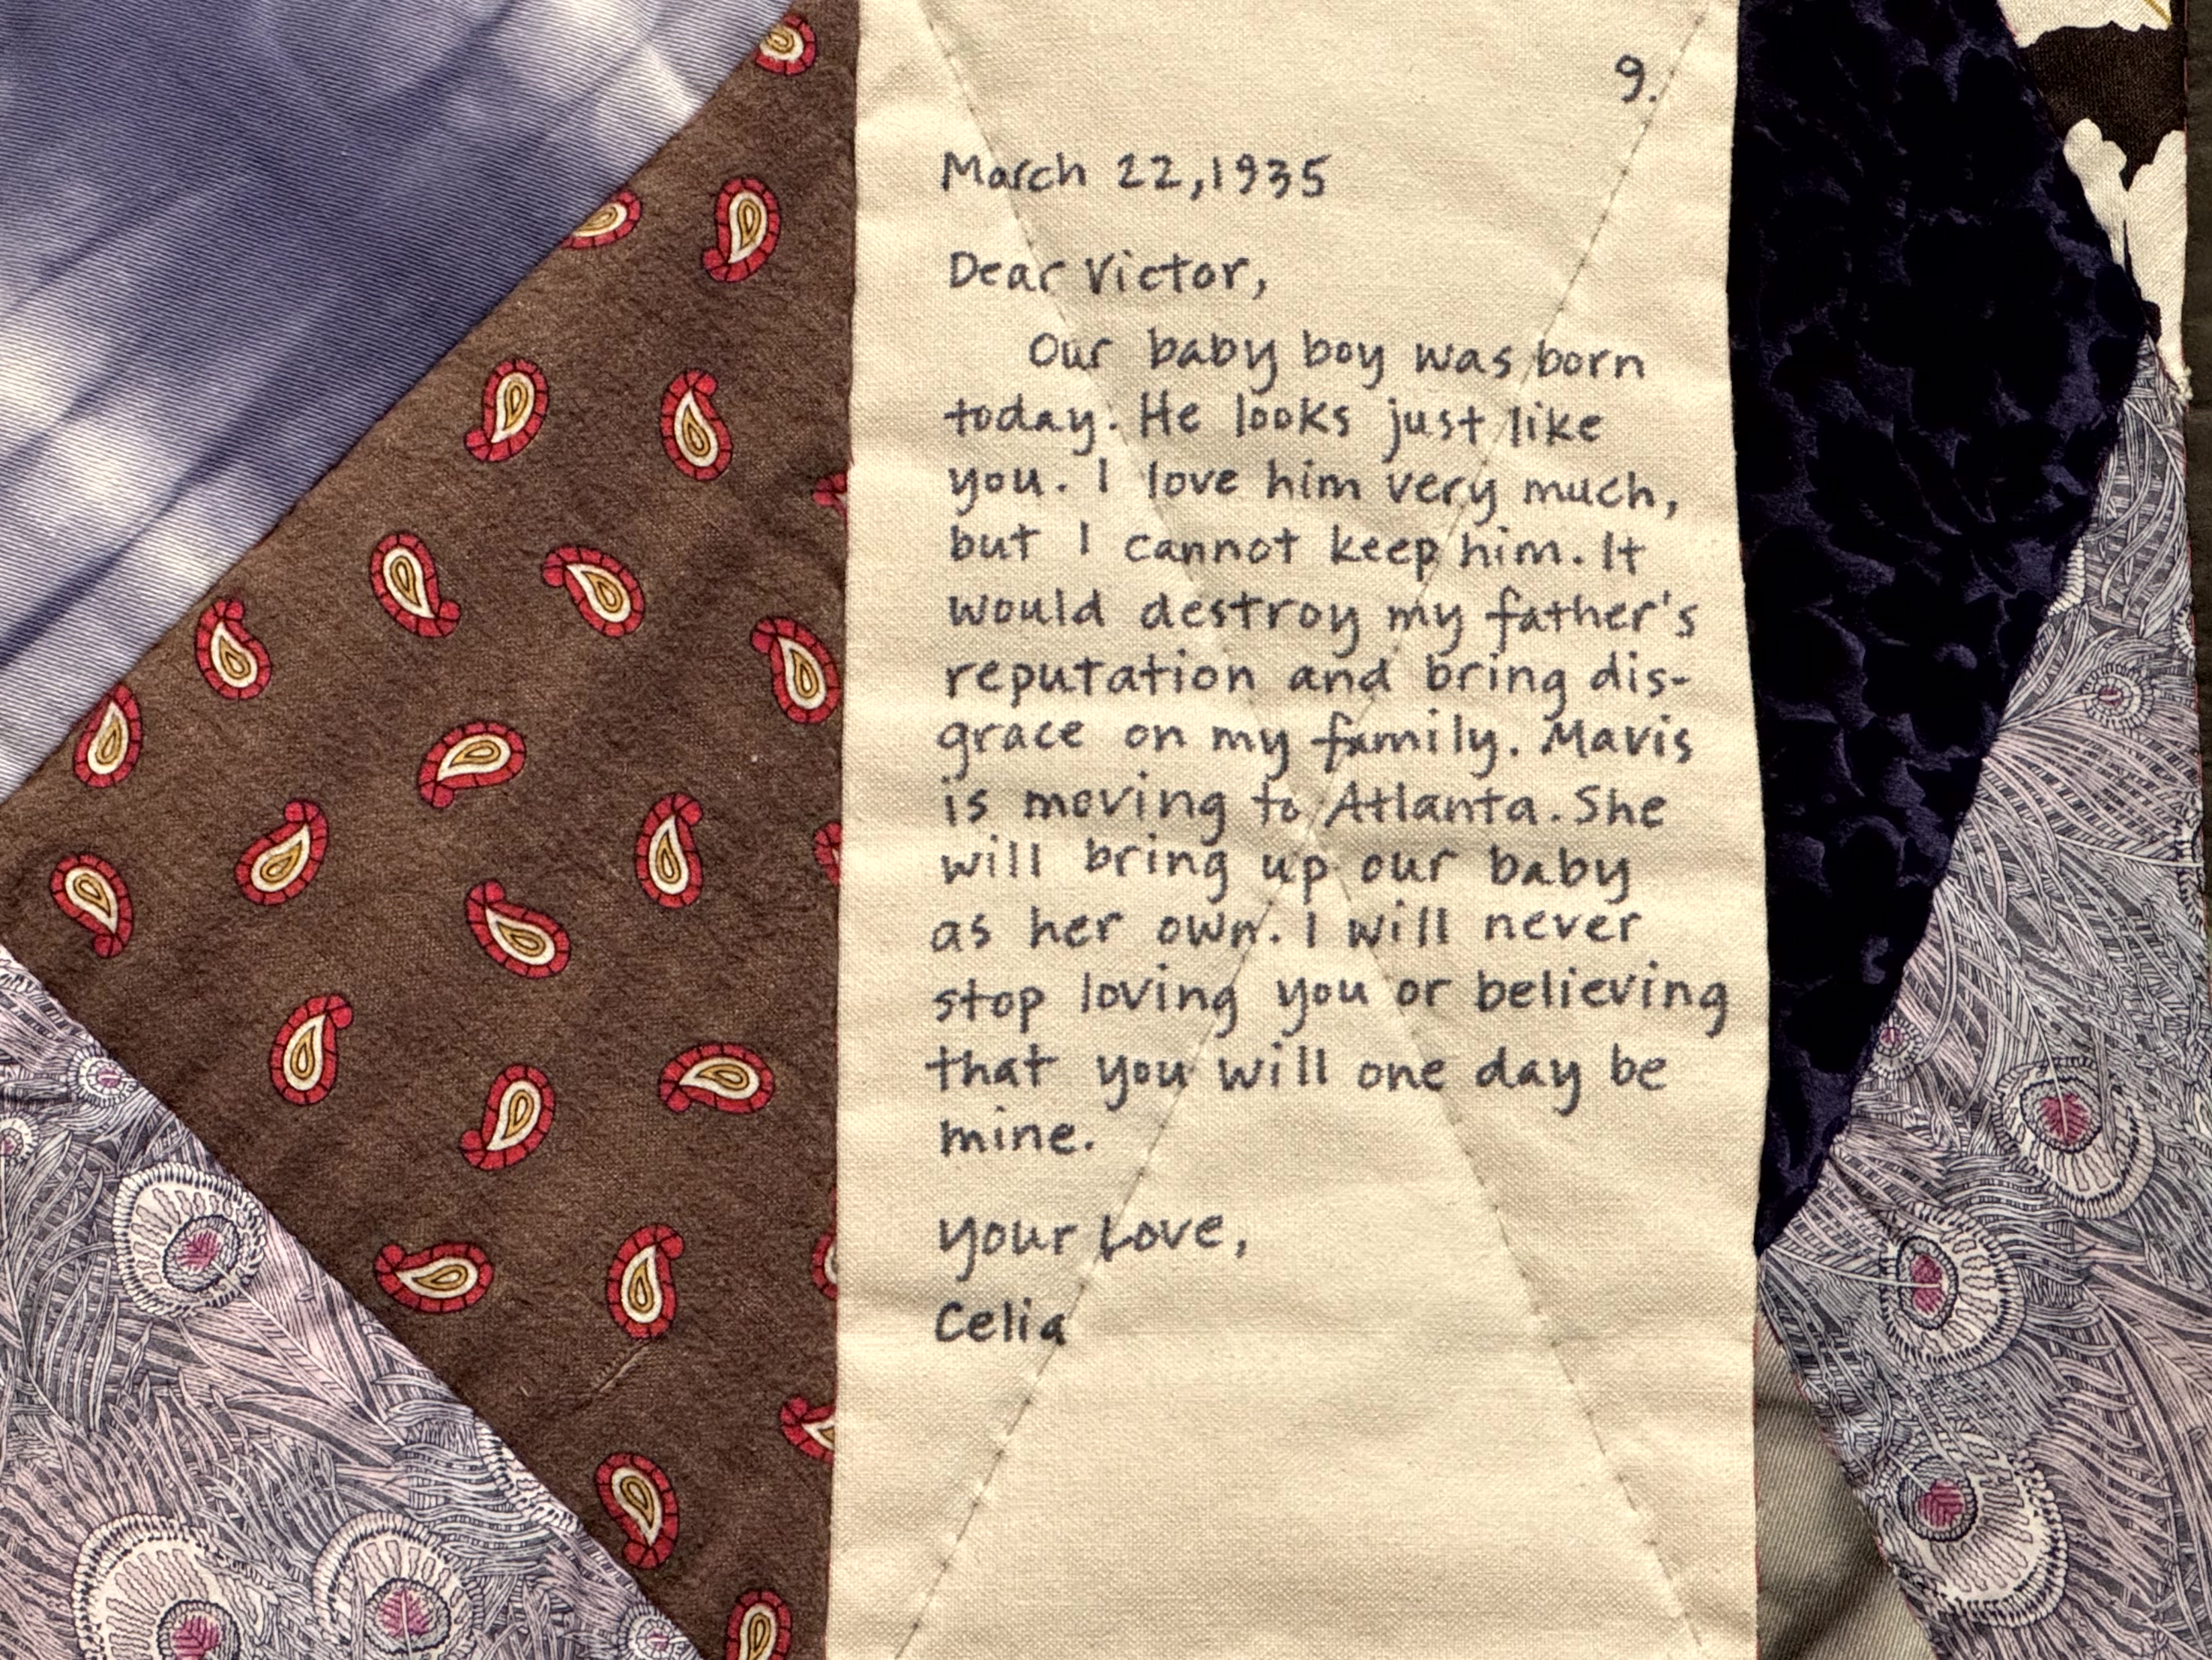 9.
March 22, 1935
Dear Victor,
Our baby boy was born
today. He looks just like
you. I love him very much,
but I cannot keep him. It
would destroy my father's
reputation and bring dis-
grace on my family. Mavis
is moving to Atlanta. She
will bring up our baby
as her own. I will never
stop loving you or believing
that you will one day be
mine.
your Love,
Celia